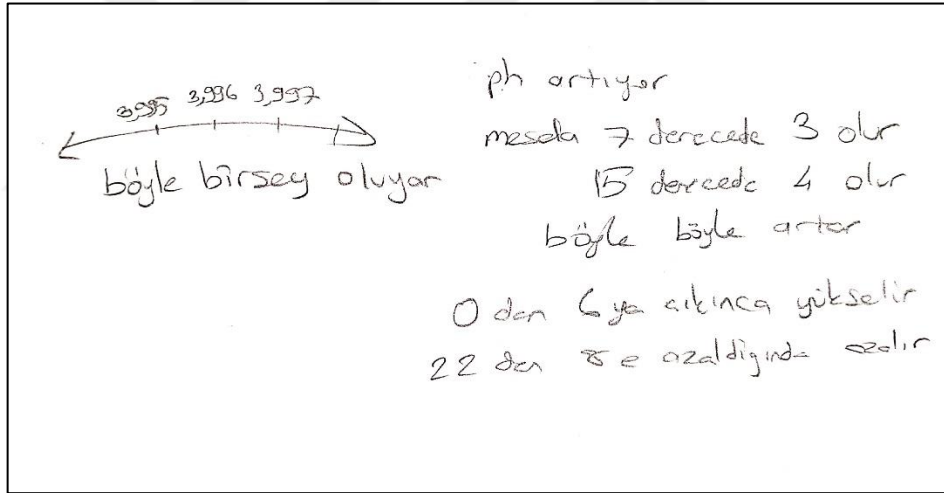 3,995 3,996 3,997
böyle birşey oluyor
ph artıyor
mesela 7 derecede 3 olur
15 derecede 4 olur
böyle böyle artar
0 dan 6 ya çıkınca yükselir
22 den 8 e azaldığında azalır